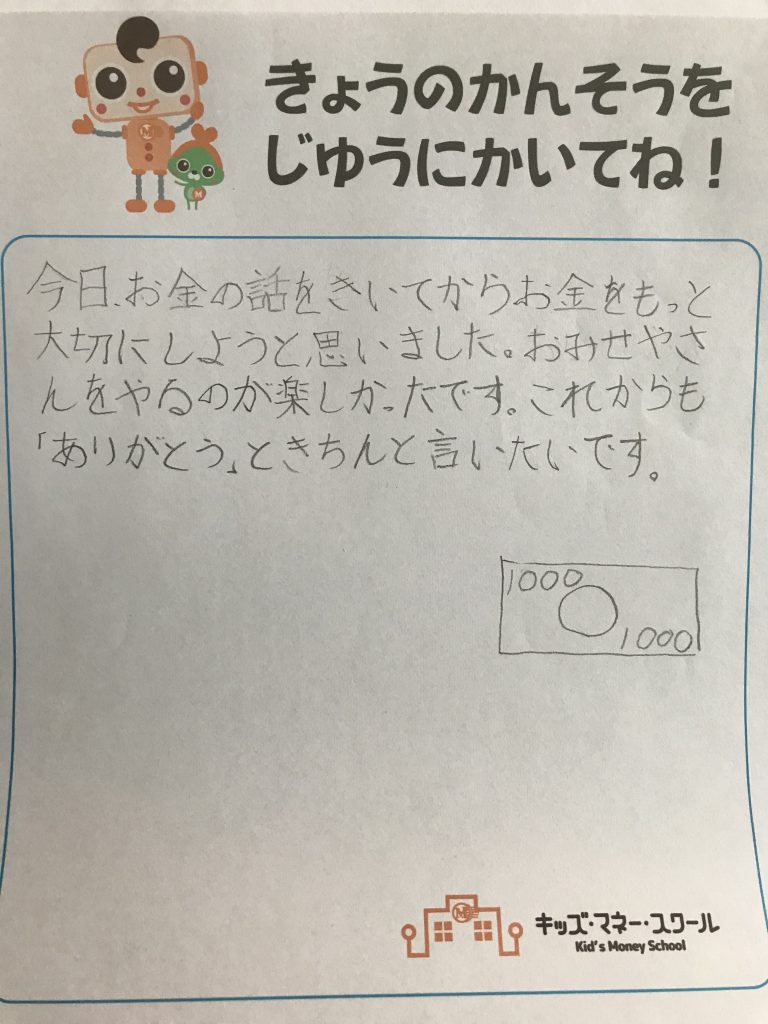 きょうのかんそうを
じゆうにかいてね！
今日、お金の話をきいてからお金をもっと
大切にしようと思いました。おみせやさ
んをやるのが楽しかったです。これからも
「ありがとう」ときちんと言いたいです。
1000
1000
キッズ・マネー・スクール
Kid's Money School